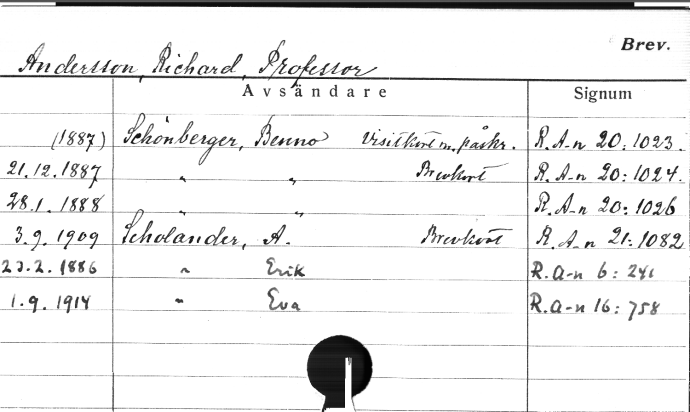 Brev.
Andersson, Richard, Professor
Avsändare Signum
(1887) Schönberger, Benno Visitkort m. påskr. R.A-n 20:1023.
21.12.1887 " " Brevkort R.A-n 20:1024.
28.1.1888 " " R.A-n 20:1026
3.9.1909 Scholander, A. Brevkort R.A-n 21:1082
23.2.1886 " Erik R.a-n 6:241
1.9.1914 " Eva R.a-n 16:758